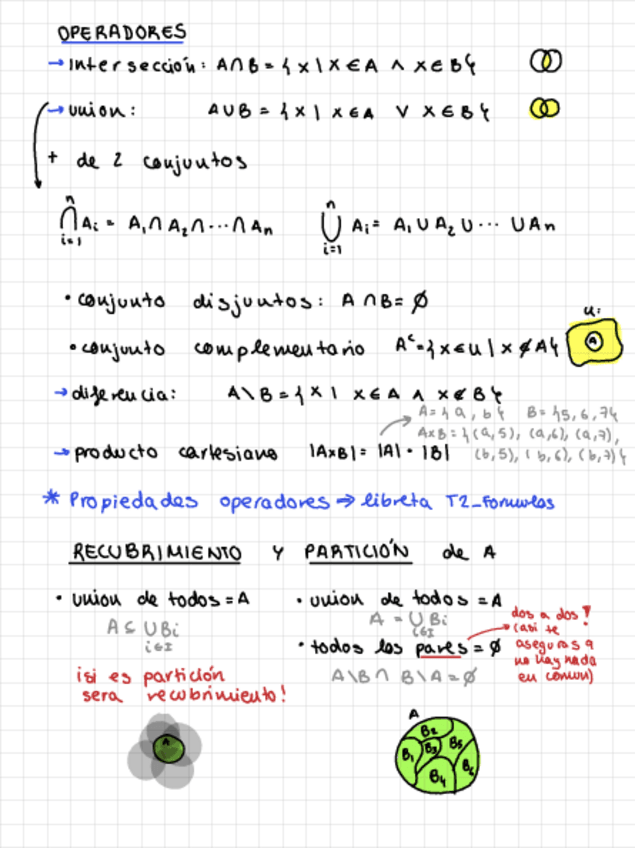 OPERADORES
→ intersección: A∩B = { x | x ∈ A ∧ x ∈ B }
→ union: A∪B = { x | x ∈ A ∨ x ∈ B }
+ de 2 conjuntos
⋂ⁿᵢ₌₁ Aᵢ = A₁ ∩ A₂ ∩ ··· ∩ Aₙ ⋃ⁿᵢ₌₁ Aᵢ = A₁ ∪ A₂ ∪ ··· ∪ Aₙ
• conjunto disjuntos: A ∩ B = ∅
u:
• conjunto complementario Aᶜ = { x ∈ u | x ∉ A } A
→ diferencia: A \ B = { x | x ∈ A ∧ x ∉ B }
A = { a, b } B = { 5, 6, 7 }
AxB = { (a,5), (a,6), (a,7),
→ producto cartesiano |AxB| = |A| · |B| (b,5), (b,6), (b,7) }
* Propiedades operadores → libreta T2_Formulas
RECUBRIMIENTO Y PARTICIÓN de A
• union de todos = A
A ⊆ ∪ Bi
i∈I
¡si es partición
sera recubrimiento!
A
• union de todos = A
A = ∪ Bi
i∈I
• todos los pares = ∅
A\B ∩ B\A = ∅
dos a dos!
(asi te
aseguras q
no hay nada
en comun)
A
B₂
B₁ B₃ B₅
B₄ B₆